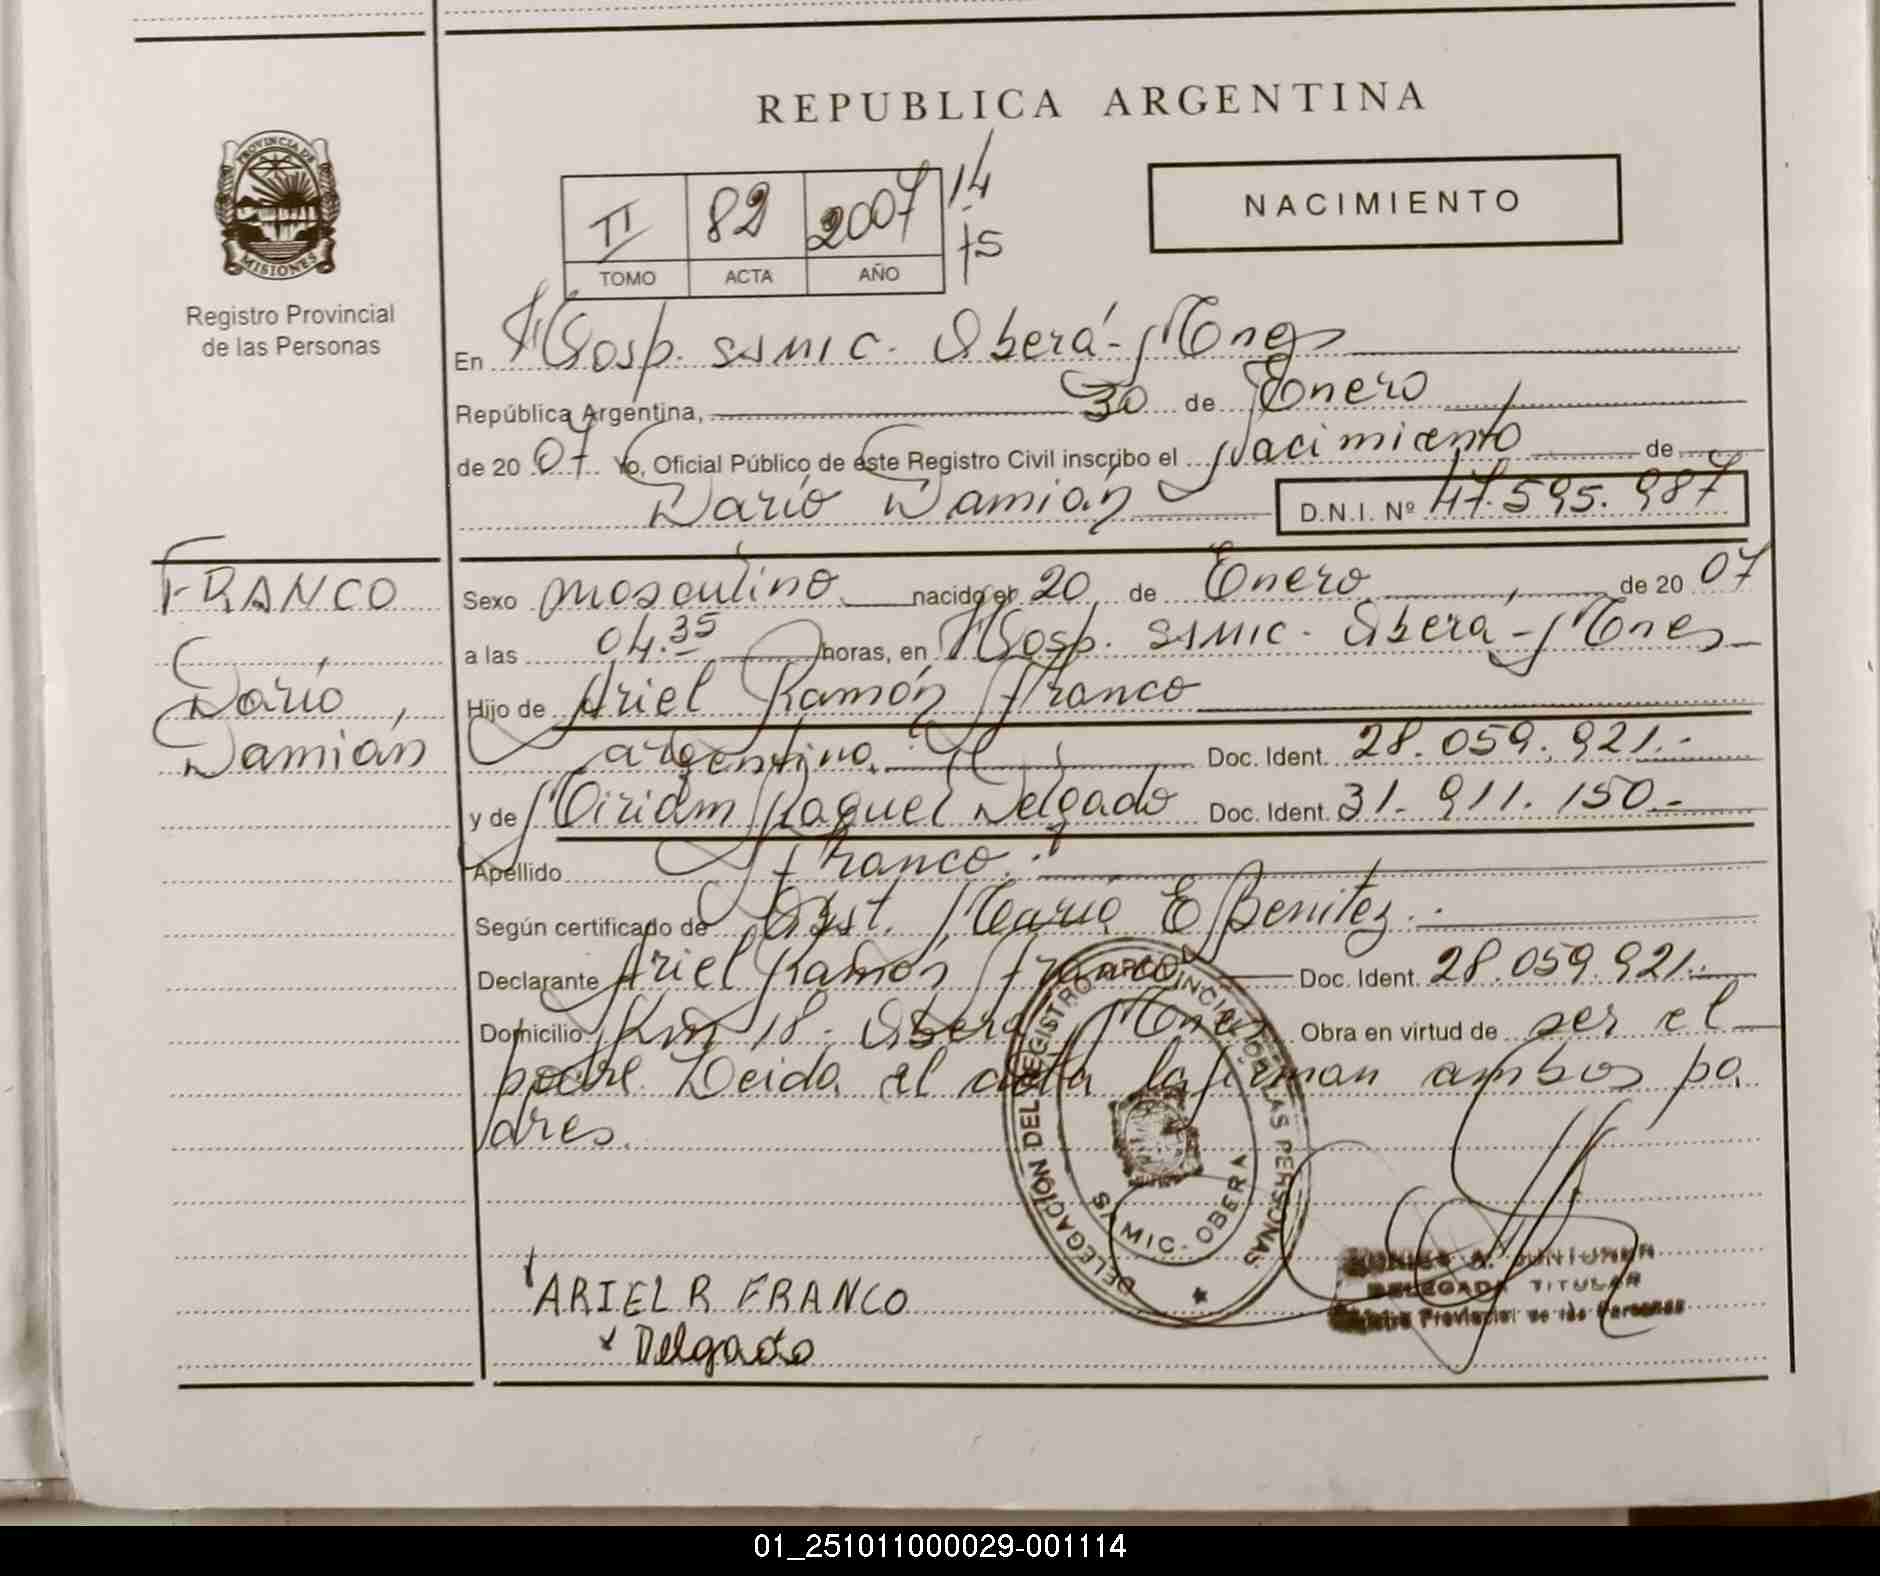 REPUBLICA ARGENTINA
PROVINCIA DE
MISIONES
Registro Provincial
de las Personas
II 82 2007 14
15
TOMO ACTA AÑO
NACIMIENTO
En Hosp. SAMIC. Oberá-Mnes
República Argentina, 30 de Enero
de 20 07 Yo, Oficial Público de este Registro Civil inscribo el Nacimiento de
Darío Damián D.N.I. Nº 47.595.987
FRANCO
Darío
Damián
Sexo masculino nacido el 20 de Enero de 20 07
a las 04.35 horas, en Hosp. SAMIC. Oberá-Mnes
Hijo de Ariel Ramón Franco
argentino. Doc. Ident. 28.059.921.-
y de Miriam Raquel Delgado Doc. Ident. 31.911.150.-
Apellido Franco.
Según certificado de Obst. María E Benitez.
Declarante Ariel Ramón Franco Doc. Ident. 28.059.921.
Domicilio Km 18. Oberá Mnes Obra en virtud de ser el
padre. Leida el acta la firman ambos pa
dres.
DELEGACIÓN DEL REGISTRO PROVINCIAL DE LAS PERSONAS
SAMIC. OBERA
ARIEL R FRANCO
Delgado
DELEGADA TITULAR
Registro Provincial de las Personas
01_251011000029-001114